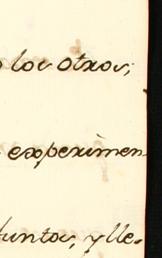 los otros;
experimen
tunta, y lle-